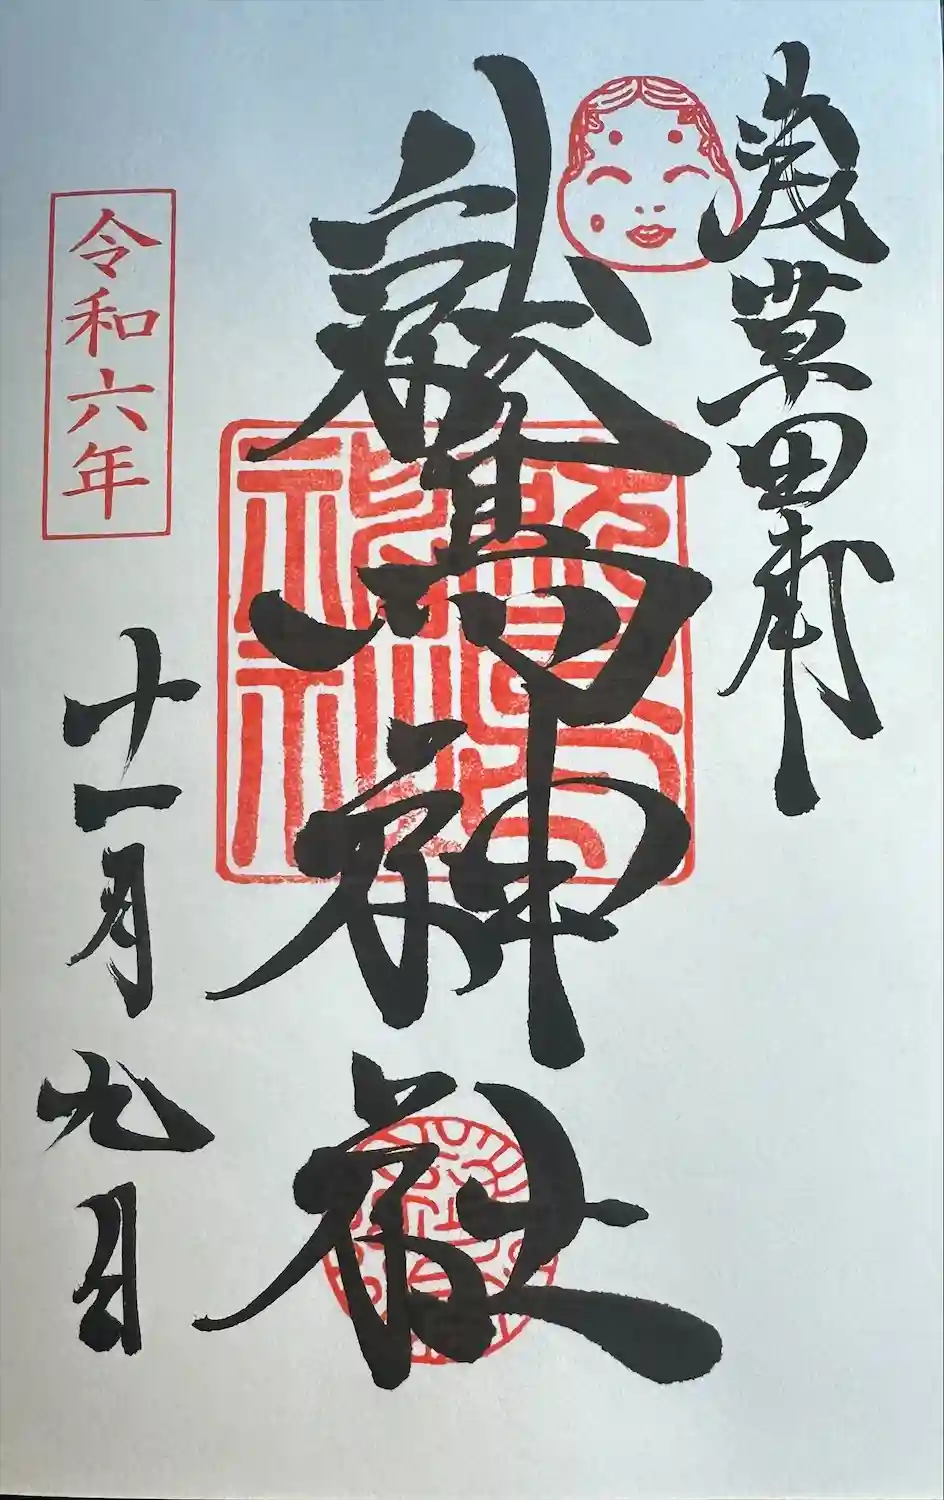 浅草田甫
鷲神社
鷲神社
令和六年
十一月九日